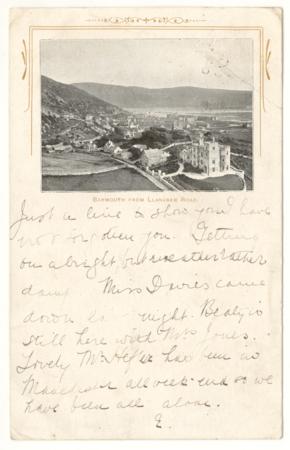 BARMOUTH FROM LLANABER ROAD.
Just a line to show you I have
not forgotten you. Getting
on alright but weather rather
damp. Miss Davies came
down to-night. Beaty is
still here with Mrs Jones.
Lovely Mr has been in
Manchester all week-end so we
have been all alone.
E.